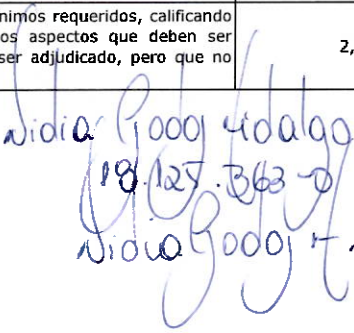 nimos requeridos, calificando
os aspectos que deben ser
ser adjudicado, pero que no
2,
Nidia Godoy Hidalgo
18.125.363-0
Nidia Godoy H.